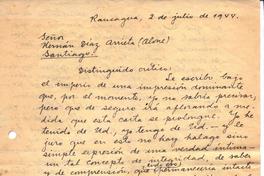 Rancagua, 2 de julio de 1944.
Señor
Hernán Díaz Arrieta (Alone)
Santiago.
Distinguido crítico:
Le escribo bajo
el imperio de una impresión dominante
que, por el momento, yo no sabría precisar,
pero que de seguro irá aflorando a me-
dida que esta carta se prolongue. Yo he
tenido de Ud., yo tengo de Ud. — y le
juro que en esto no hay halago sino
simple expresión de una verdad íntima —
un tal concepto de integridad, de saber
y de comprensión, que permanecería